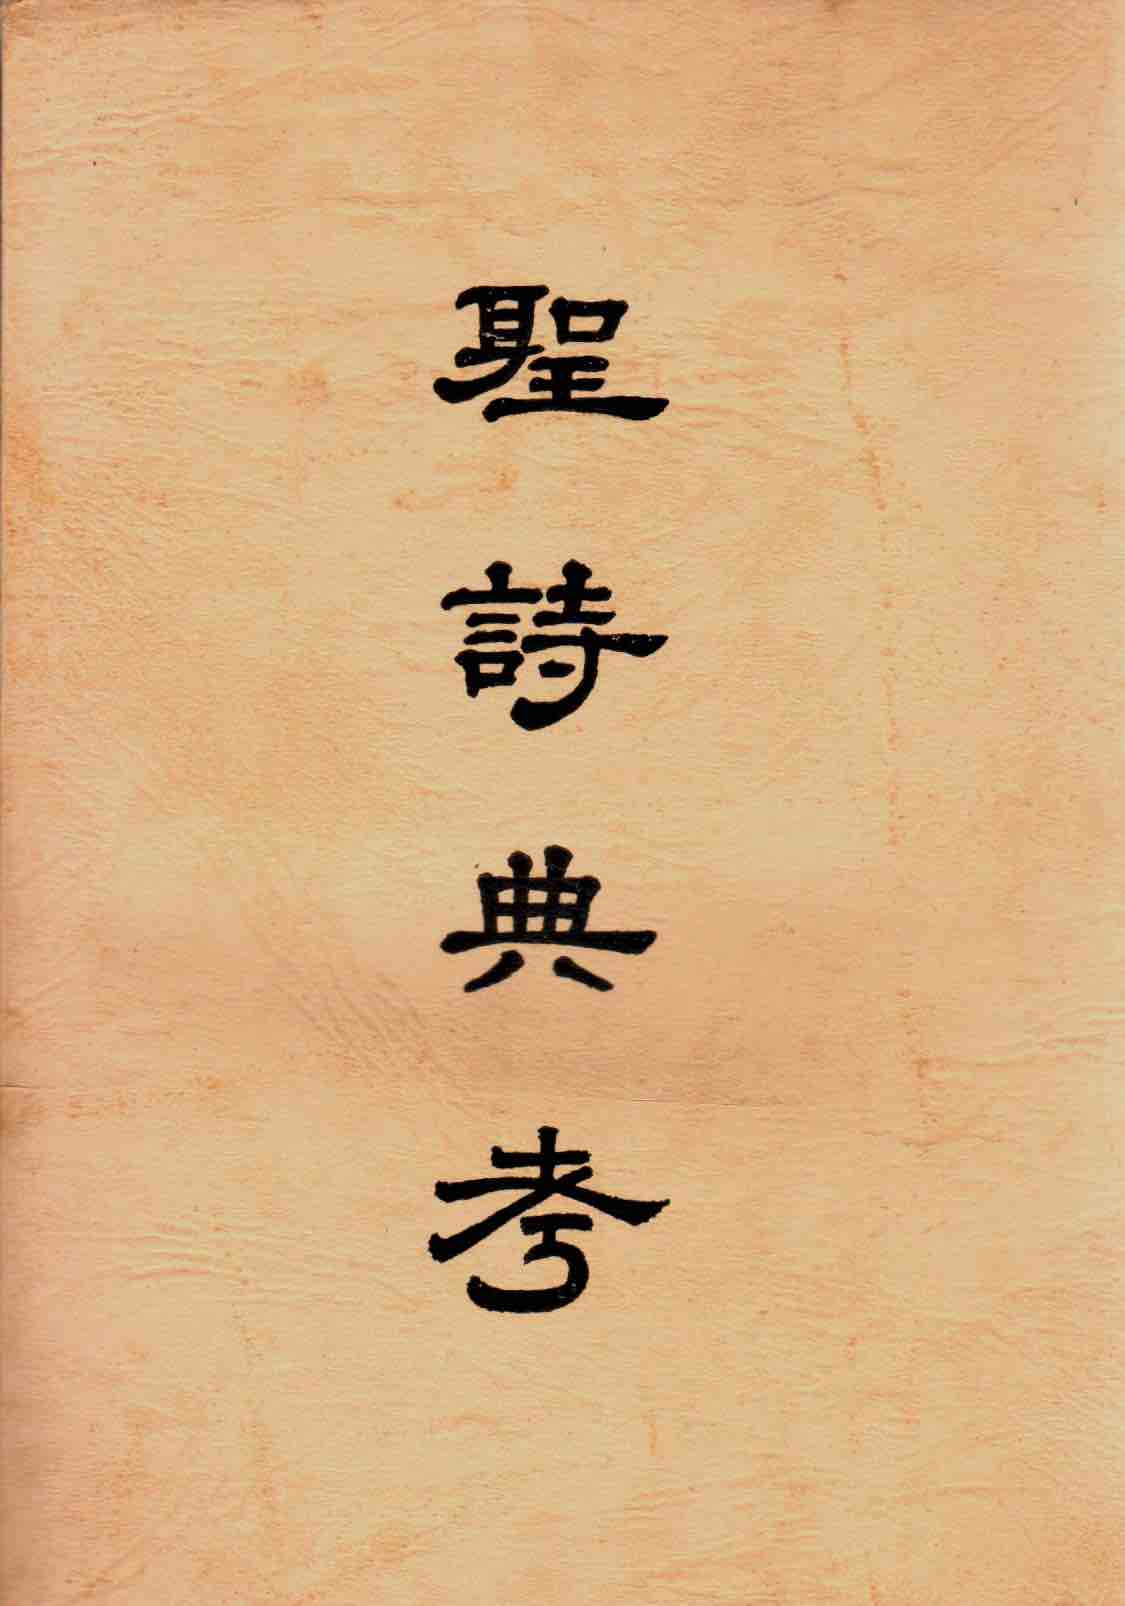 聖詩典考